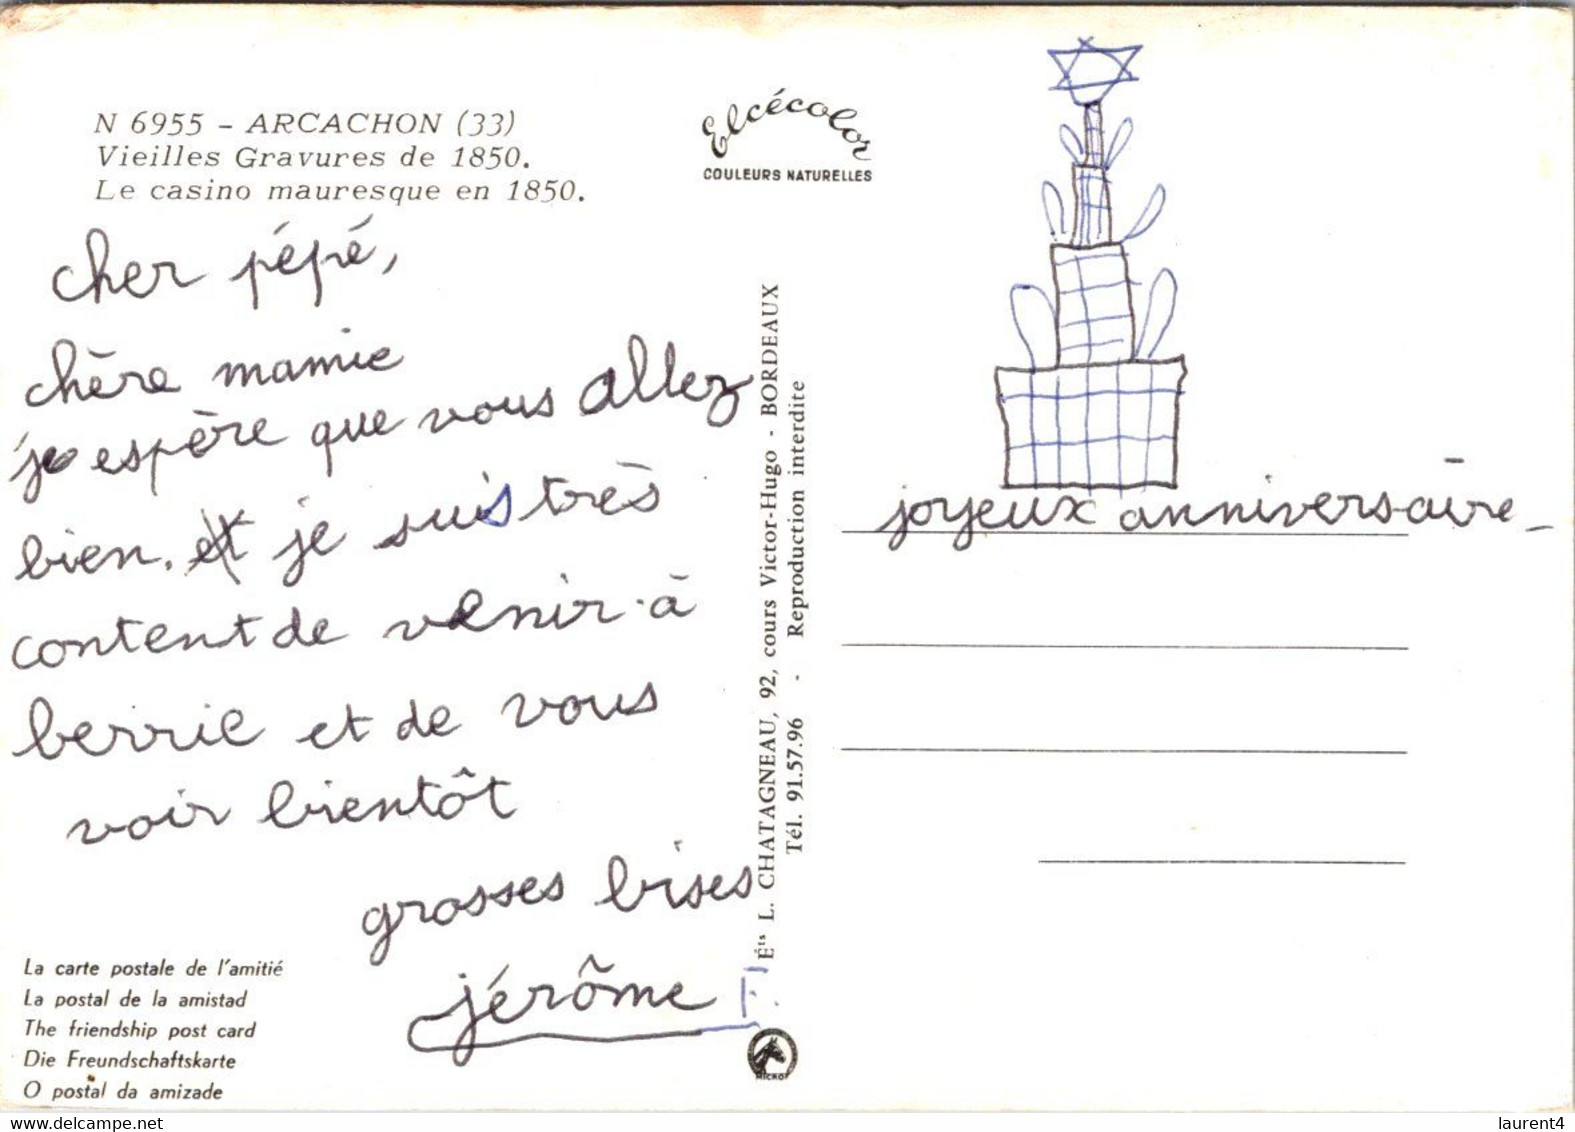 N 6955 - ARCACHON (33)
Vieilles Gravures de 1850.
Le casino mauresque en 1850.
Elcécolor
COULEURS NATURELLES
cher pépé,
chère mamie
je espère que vous allez
bien. et je suis très
content de venir à
berrie et de vous
voir bientôt
grosses bises
jérôme F.
La carte postale de l'amitié
La postal de la amistad
The friendship post card
Die Freundschaftskarte
O postal da amizade
Éts L. CHATAGNEAU, 92, cours Victor-Hugo - BORDEAUX
Tél. 91.57.96 - Reproduction interdite
joyeux anniversaire_
laurent4